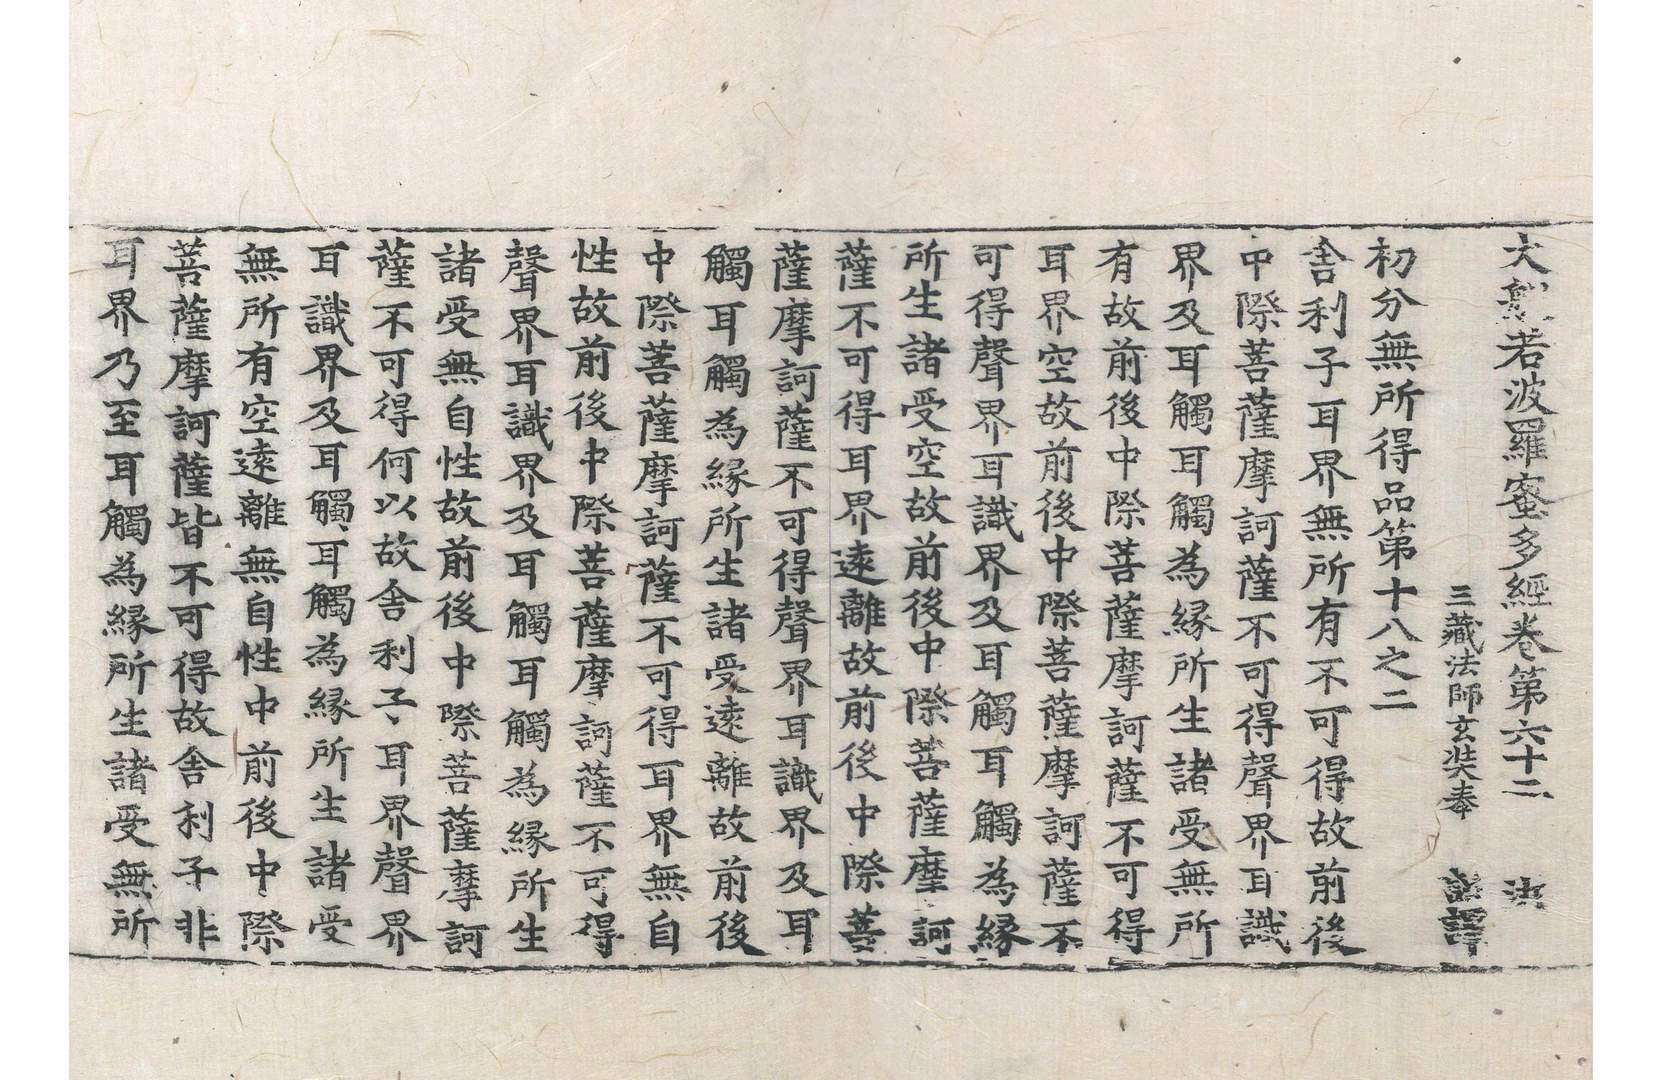 大般若波羅蜜多經卷第六十二　洪
三藏法師玄奘奉　詔譯
初分無所得品第十八之二
舍利子耳界無所有不可得故前後
中際菩薩摩訶薩不可得聲界耳識
界及耳觸耳觸為緣所生諸受無所
有故前後中際菩薩摩訶薩不可得
耳界空故前後中際菩薩摩訶薩不
可得聲界耳識界及耳觸耳觸為緣
所生諸受空故前後中際菩薩摩訶
薩不可得耳界遠離故前後中際菩
薩摩訶薩不可得聲界耳識界及耳
觸耳觸為緣所生諸受遠離故前後
中際菩薩摩訶薩不可得耳界無自
性故前後中際菩薩摩訶薩不可得
聲界耳識界及耳觸耳觸為緣所生
諸受無自性故前後中際菩薩摩訶
薩不可得何以故舍利子耳界聲界
耳識界及耳觸耳觸為緣所生諸受
無所有空遠離無自性中前後中際
菩薩摩訶薩皆不可得故舍利子非
耳界乃至耳觸為緣所生諸受無所